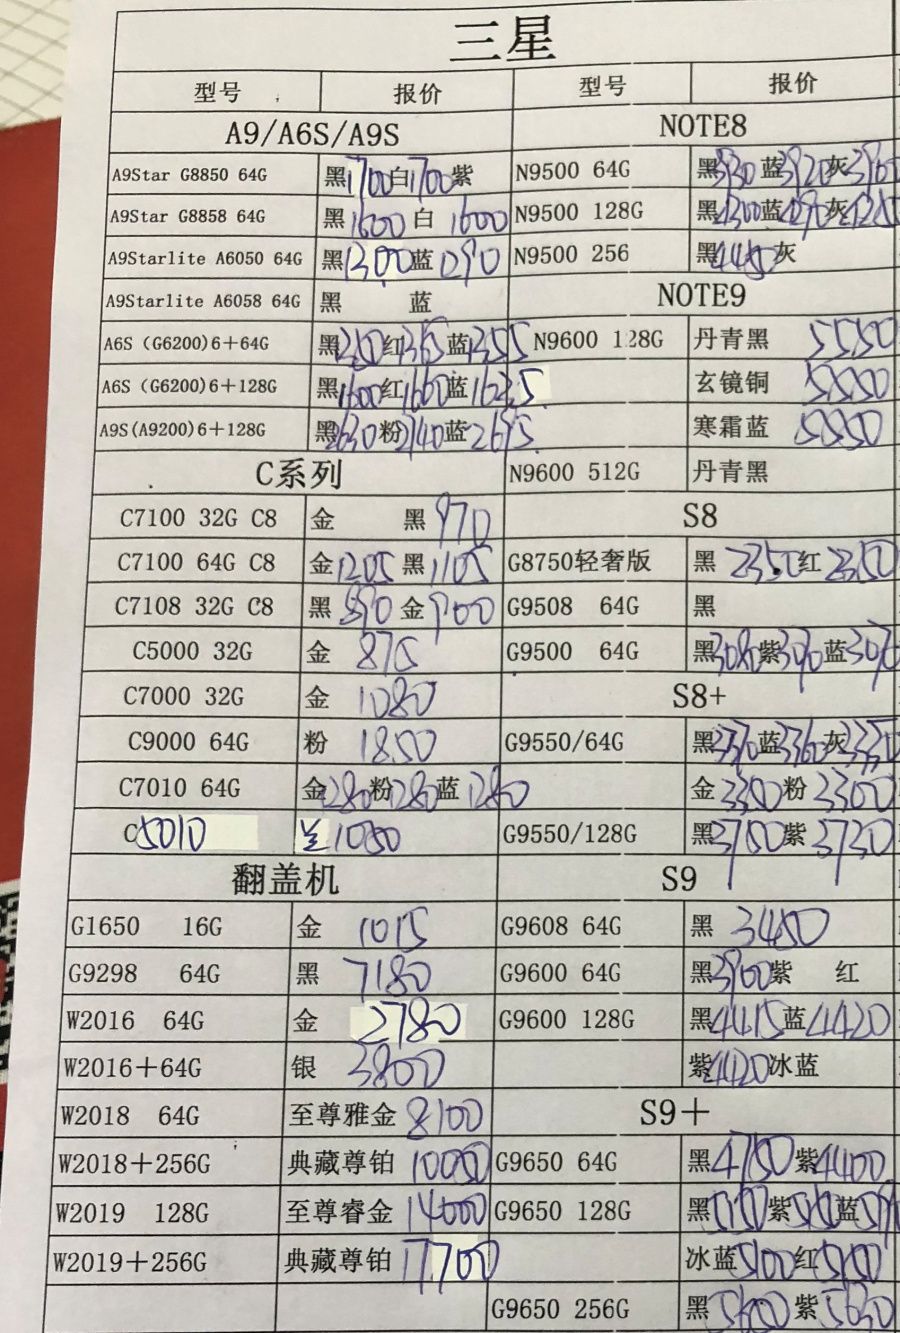 三星
型号 报价 型号 报价
A9/A6S/A9S NOTE8
A9Star G8850 64G 黑1700白1700紫 N9500 64G 黑 蓝3920灰
A9Star G8858 64G 黑1600白 1600 N9500 128G 黑4300蓝 灰
A9Starlite A6050 64G 黑1300蓝1290 N9500 256 黑4450灰
A9Starlite A6058 64G 黑 蓝 NOTE9
A6S (G6200)6+64G 黑 红1365蓝1355 N9600 128G 丹青黑 5550
A6S (G6200)6+128G 黑1600红1660蓝 玄镜铜 5550
A9S(A9200)6+128G 黑2630粉 蓝2695 寒霜蓝 5550
C系列 N9600 512G 丹青黑
C7100 32G C8 金 黑970 S8
C7100 64G C8 金1205黑1105 G8750轻奢版 黑 2350红2350
C7108 32G C8 黑890金900 G9508 64G 黑
C5000 32G 金 875 G9500 64G 黑3080紫 蓝
C7000 32G 金 1080 S8+
C9000 64G 粉 1850 G9550/64G 黑 蓝3360灰
C7010 64G 金1280粉1280蓝1280 金 粉3300
C5010 金1080 G9550/128G 黑 紫3730
翻盖机 S9
G1650 16G 金 1015 G9608 64G 黑 3450
G9298 64G 黑 7180 G9600 64G 黑3900紫 红
W2016 64G 金 2780 G9600 128G 黑4415蓝4420
W2016+64G 银 3800 紫4420冰蓝
W2018 64G 至尊雅金 8100 S9+
W2018+256G 典藏尊铂 10050 G9650 64G 黑 紫4400
W2019 128G 至尊睿金 14000 G9650 128G 黑 紫 蓝
W2019+256G 典藏尊铂 17700 冰蓝5100红5150
G9650 256G 黑5600紫5630